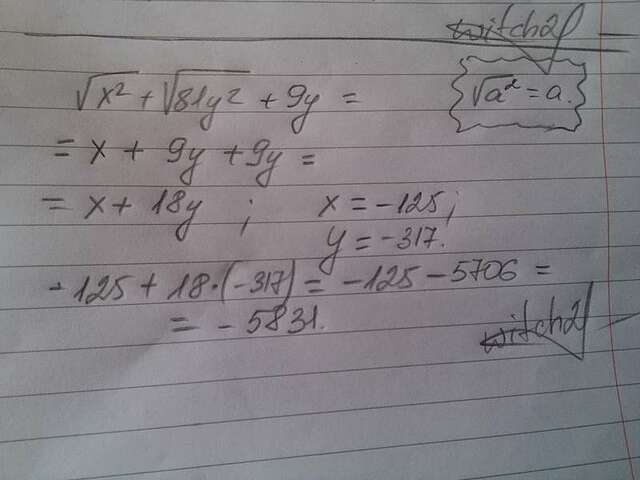 witch21
√x² + √81y² + 9y =
√a² = a.
= x + 9y + 9y =
= x + 18y ; x = -125;
y = -317.
- 125 + 18·(-317) = -125 - 5706 =
= - 5831.
witch21